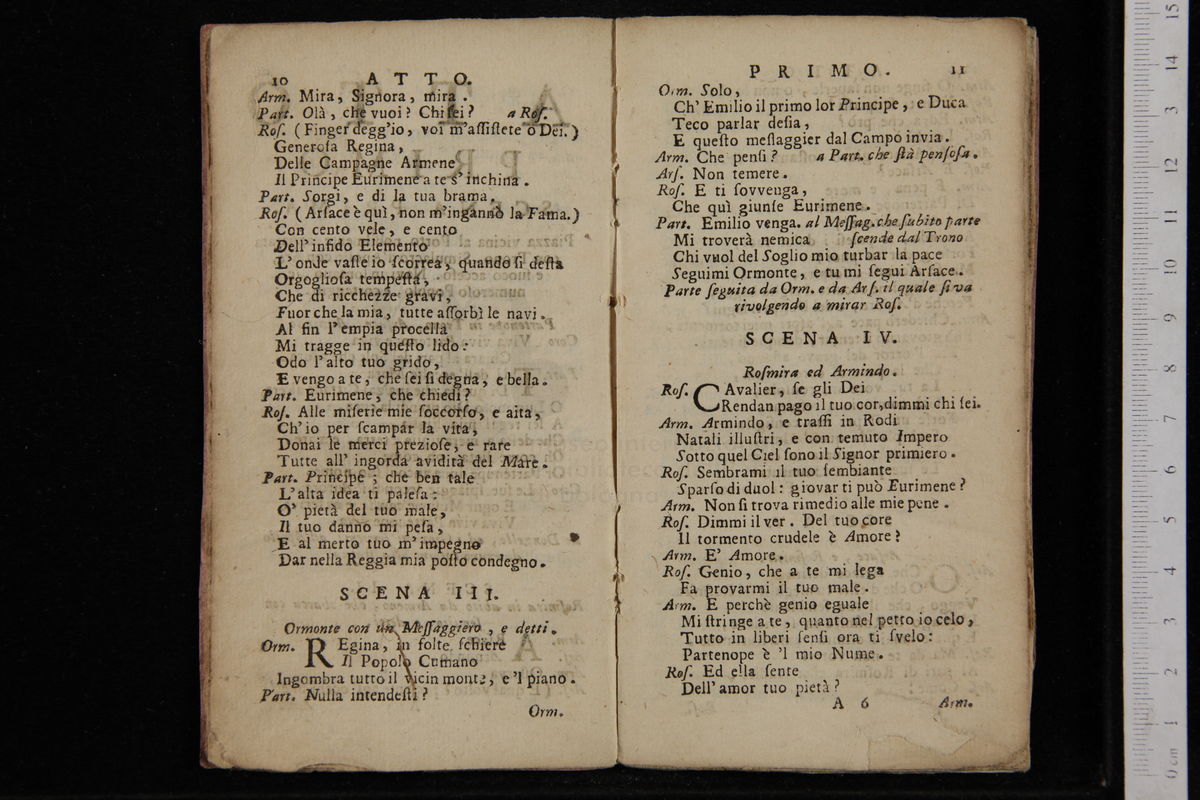 10 ATTO.
Arm. Mira, Signora, mira.
Part. Olà, che vuoi? Chi ſei? a Roſ.
Roſ. (Finger degg'io, voi m'aſſiſtete o Dei.)
Generoſa Regina,
Delle Campagne Armene
Il Principe Eurimene a te s'inchina.
Part. Sorgi, e di la tua brama.
Roſ. (Arſace è quì, non m'ingannò la Fama.)
Con cento vele, e cento
Dell'infido Elemento
L'onde vaſte io ſcorrea, quando ſi deſta
Orgoglioſa tempeſta,
Che di ricchezze gravi,
Fuor che la mia, tutte aſſorbì le navi.
Al fin l'empia procella
Mi tragge in queſto lido:
Odo l'alto tuo grido,
E vengo a te, che ſei ſi degna, e bella.
Part. Eurimene, che chiedi?
Roſ. Alle miſerie mie ſoccorſo, e aita,
Ch'io per ſcampar la vita,
Donai le merci prezioſe, e rare
Tutte all' ingorda avidità del Mare.
Part. Principe; che ben tale
L'alta idea ti paleſa:
O' pietà del tuo male,
Il tuo danno mi peſa,
E al merto tuo m'impegno
Dar nella Reggia mia poſto condegno.
SCENA III.
Ormonte con un Meſſaggiero, e detti.
Orm. REgina, in folte ſchiere
Il Popolo Cumano
Ingombra tutto il vicin monte, e 'l piano.
Part. Nulla intendeſti?
Orm.
PRIMO. 11
Orm. Solo,
Ch'Emilio il primo lor Principe, e Duca
Teco parlar deſia,
E queſto meſſaggier dal Campo invia.
Arm. Che penſi? a Part. che ſtà penſoſa.
Arſ. Non temere.
Roſ. E ti ſovvenga,
Che quì giunſe Eurimene.
Part. Emilio venga. al Meſſag. che ſubito parte
Mi troverà nemica ſcende dal Trono
Chi vuol del Soglio mio turbar la pace
Seguimi Ormonte, e tu mi ſegui Arſace.
Parte ſeguita da Orm. e da Arſ. il quale ſi va
rivolgendo a mirar Roſ.
SCENA IV.
Roſmira ed Armindo.
Roſ. CAvalier, ſe gli Dei
Rendan pago il tuo cor, dimmi chi ſei.
Arm. Armindo, e traſſi in Rodi
Natali illuſtri, e con temuto Impero
Sotto quel Ciel ſono il Signor primiero.
Roſ. Sembrami il tuo ſembiante
Sparſo di duol: giovar ti può Eurimene?
Arm. Non ſi trova rimedio alle mie pene.
Roſ. Dimmi il ver. Del tuo core
Il tormento crudele è Amore?
Arm. E' Amore.
Roſ. Genio, che a te mi lega
Fa provarmi il tuo male.
Arm. E perchè genio eguale
Mi ſtringe a te, quanto nel petto io celo,
Tutto in liberi ſenſi ora ti ſvelo:
Partenope è 'l mio Nume.
Roſ. Ed ella ſente
Dell'amor tuo pietà?
A 6 Arm.